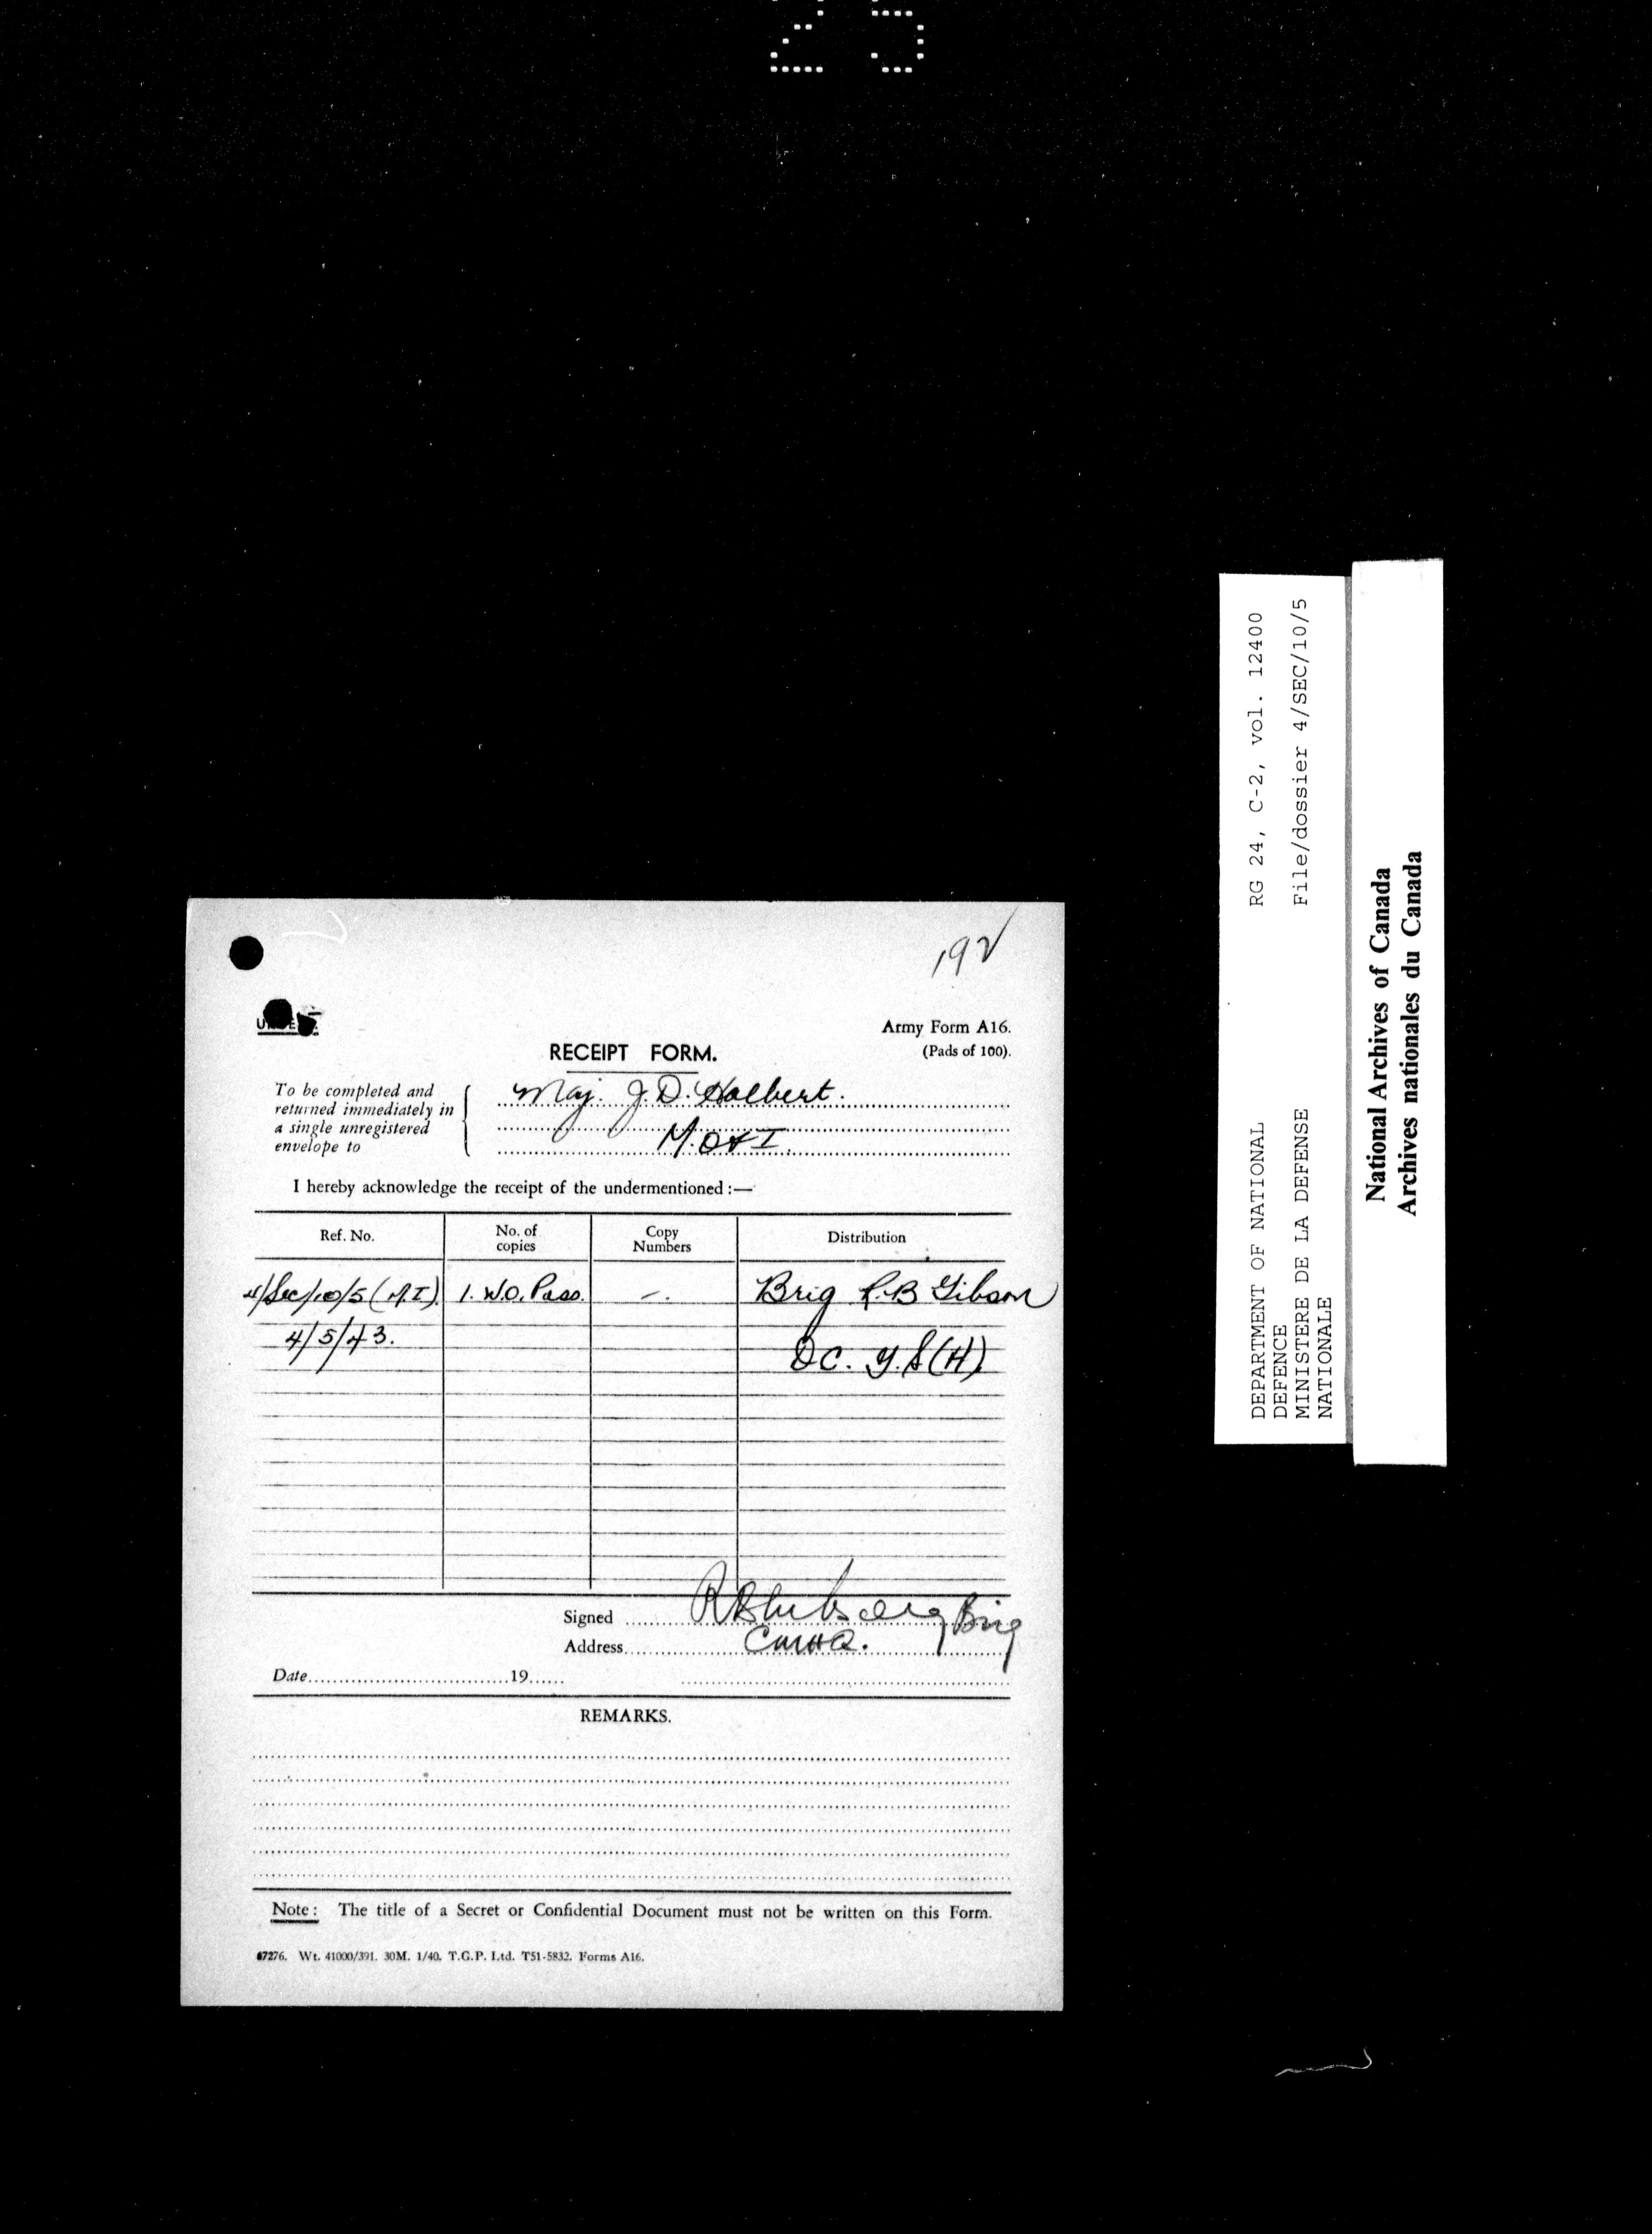 25
192
Army Form A16.
RECEIPT FORM.
(Pads of 100).
To be completed and
returned immediately in
a single unregistered
envelope to
Maj. J. D. Halbert.
M.O & I.
I hereby acknowledge the receipt of the undermentioned :—
Ref. No. No. of copies Copy Numbers Distribution
4/Sec/10/5 (M.I). 1. W.O. Pass. —. Brig R.B Gibson
4/5/43. D.C. G.S (H)
Signed Brig
Address CMHQ.
Date 19
REMARKS.
Note : The title of a Secret or Confidential Document must not be written on this Form.
67276. Wt. 41000/391. 30M. 1/40. T.G.P. Ltd. T51-5832. Forms A16.
DEPARTMENT OF NATIONAL RG 24, C-2, vol. 12400
DEFENCE
MINISTERE DE LA DEFENSE File/dossier 4/SEC/10/5
NATIONALE
National Archives of Canada
Archives nationales du Canada